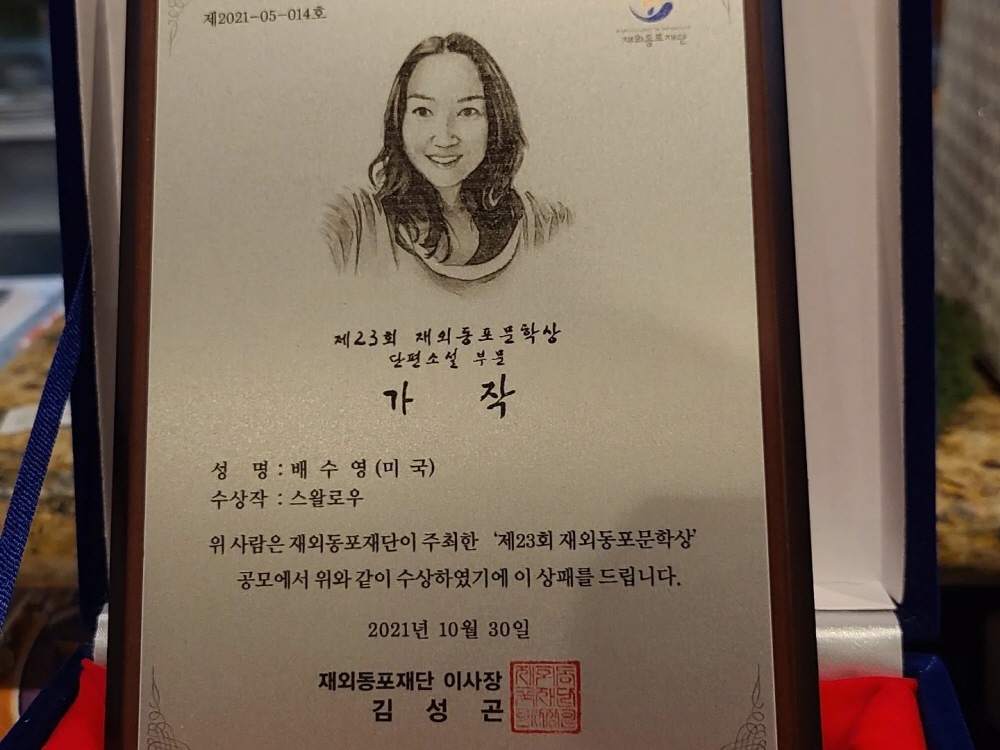 제2021-05-014호
재외동포재단
제23회 재외동포문학상
단편소설 부문
가 작
성 명 : 배 수 영 (미 국)
수상작 : 스왈로우
위 사람은 재외동포재단이 주최한 '제23회 재외동포문학상'
공모에서 위와 같이 수상하였기에 이 상패를 드립니다.
2021년 10월 30일
재외동포재단 이사장
김 성 곤